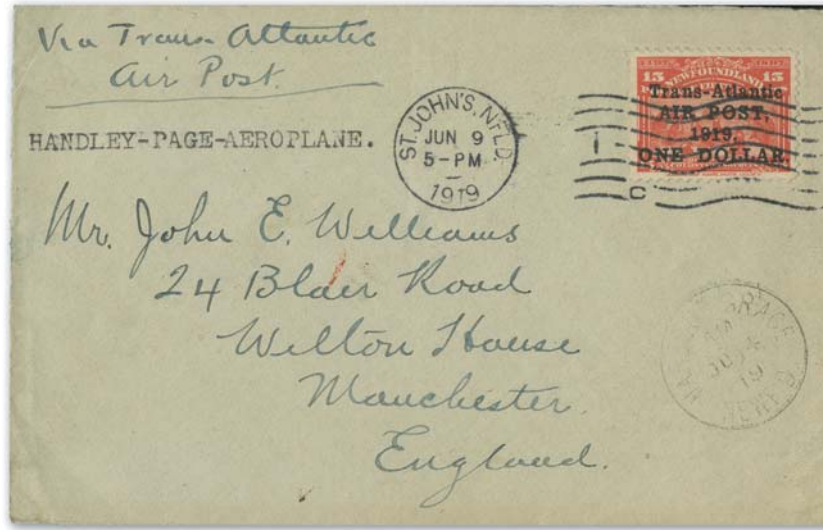 Via Trans-Atlantic
Air Post.
HANDLEY-PAGE-AEROPLANE.
ST. JOHN'S, NFLD.
JUN 9
5-PM
1919
C
15 NEWFOUNDLAND 15
Trans-Atlantic
AIR POST,
1919,
ONE DOLLAR.
Mr. John E. Williams
24 Blair Road
Wilton House
Manchester
England.
GRACE
AM
19
NEWF'D